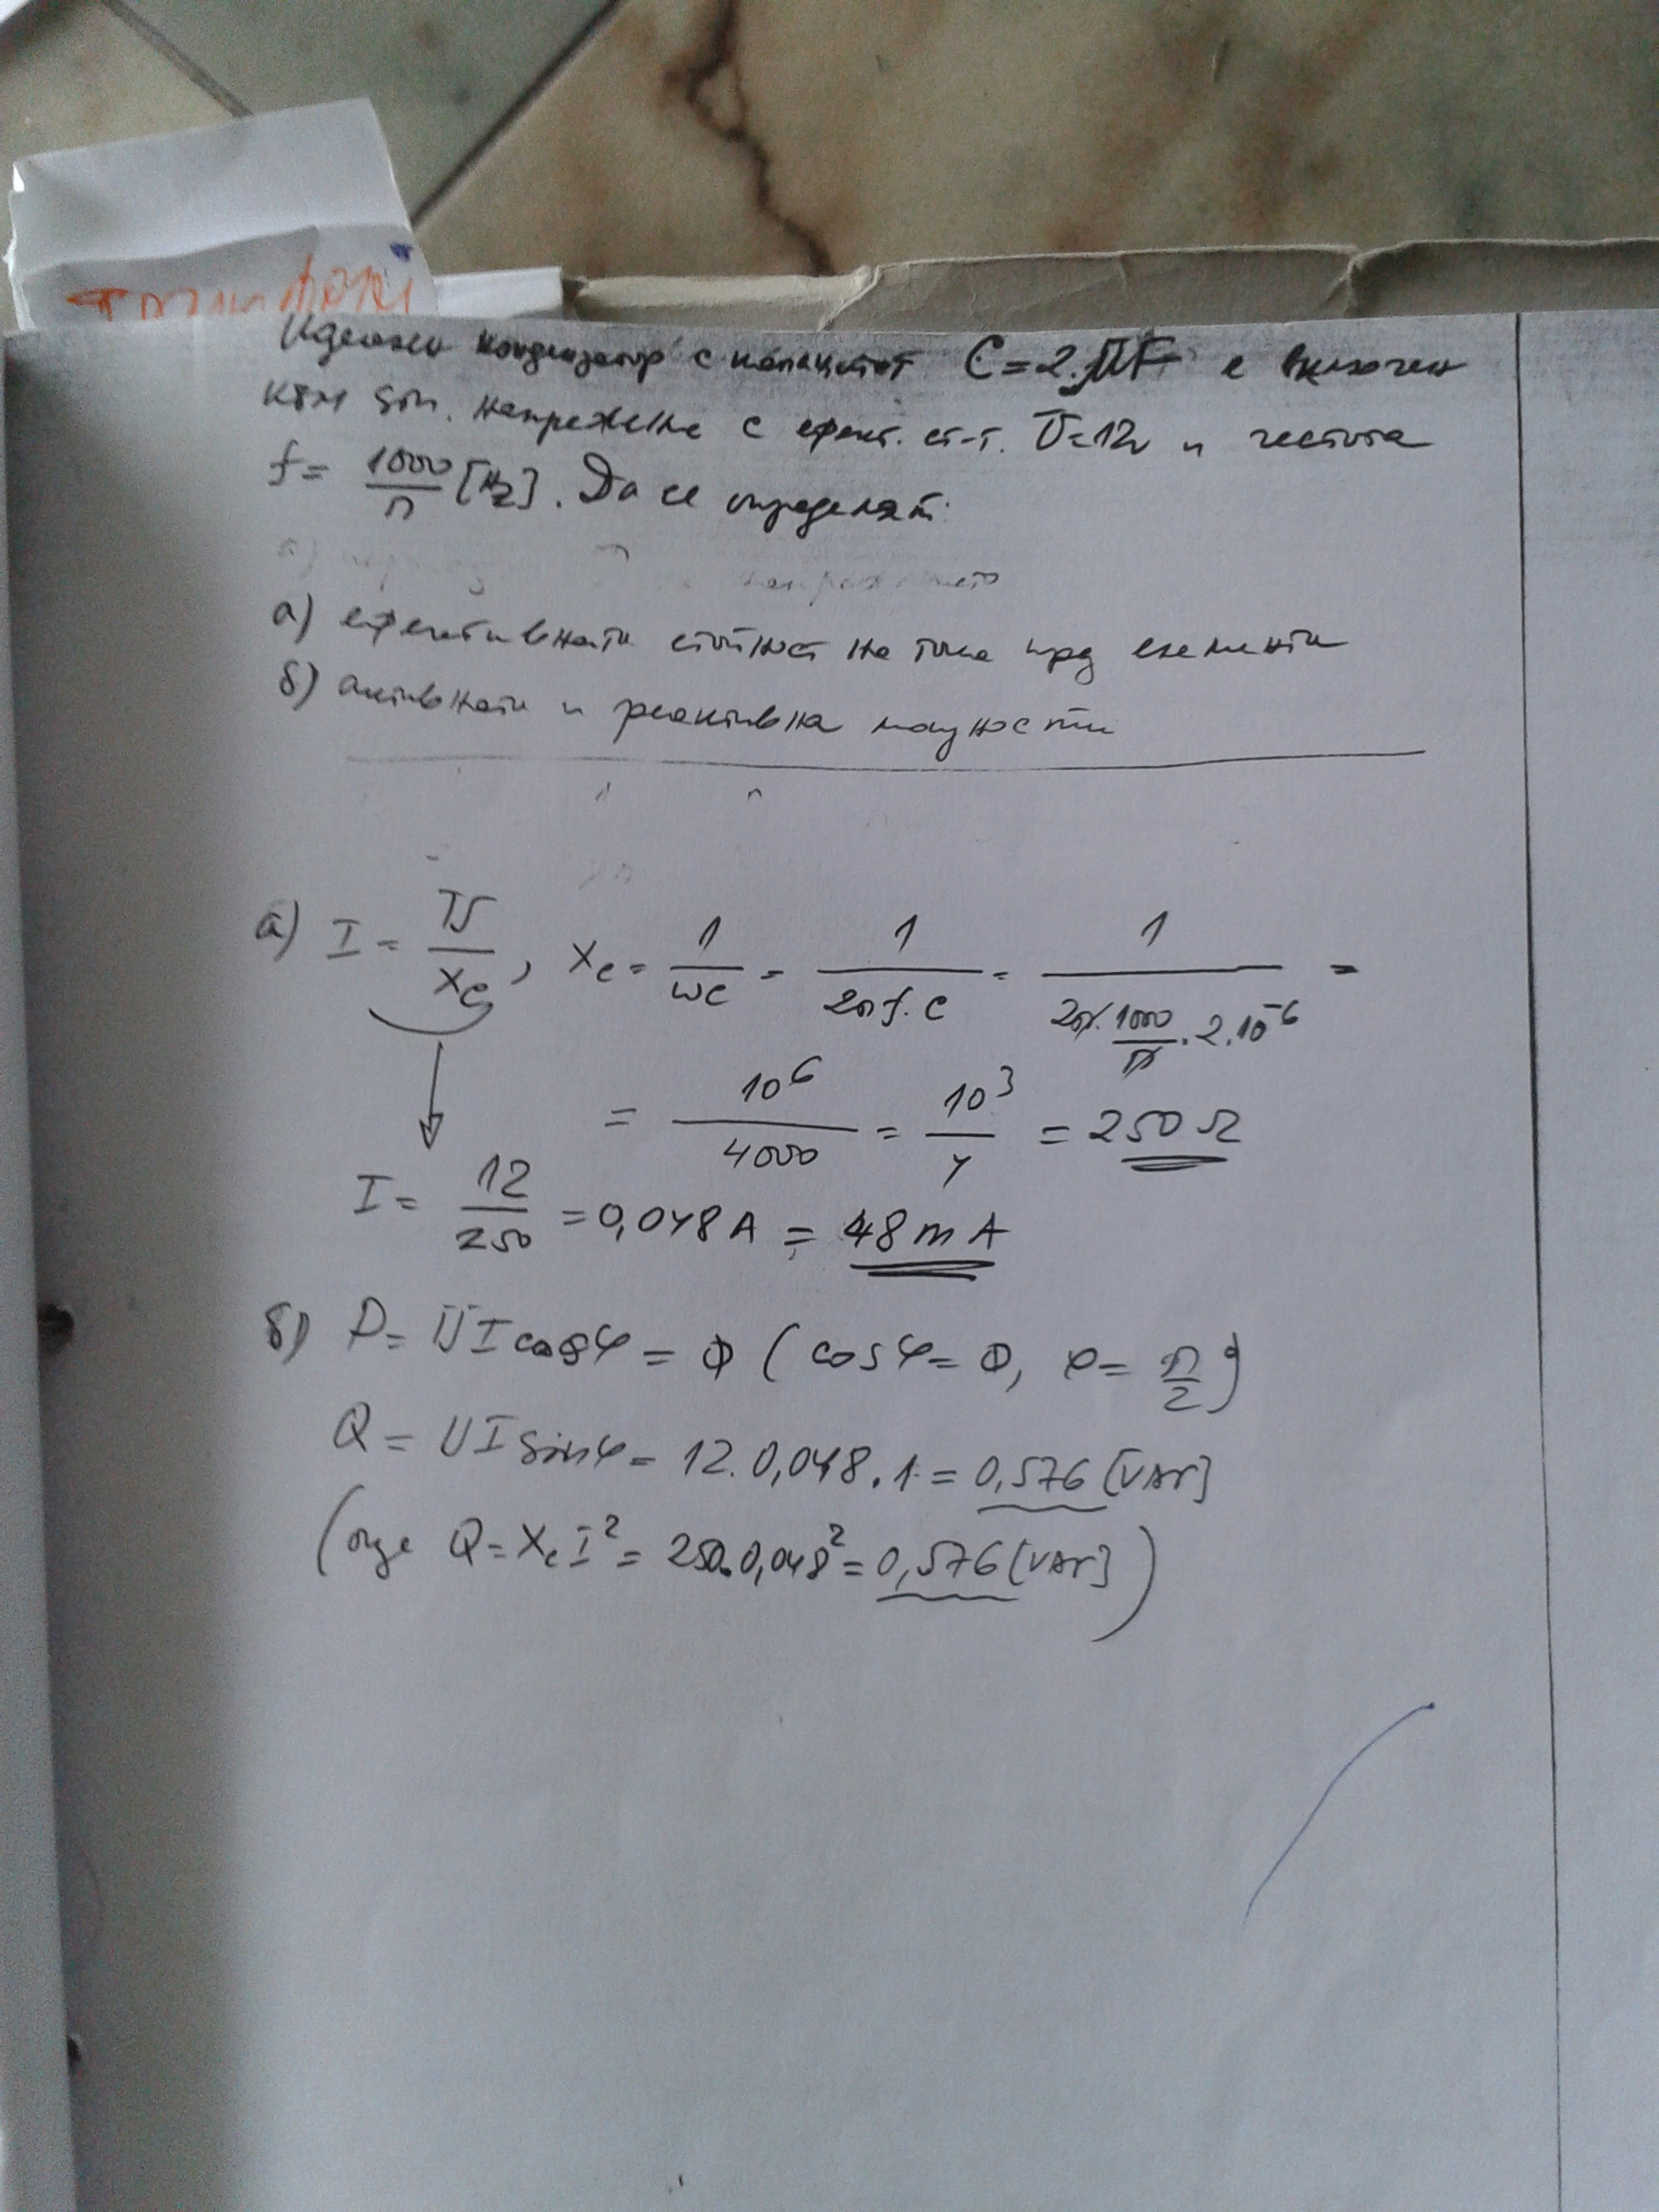 Идеален кондензатор с капацитет C=2.μF е включен
към sin. напрежение с ефект. ст-т. U=12v и честота
f= 1000/π [Hz]. Да се определят:
напрежението
а) ефективната стойност на тока през елемента
б) активната и реактивна мощности
а) I = U/Xc, Xc = 1/ωC = 1/2πf.C = 1/2π.1000/π.2.10^-6 =
= 10^6/4000 = 10^3/4 = 250Ω
I = 12/250 = 0,048A = 48mA
б) P= UIcosφ = 0 (cosφ=0, φ= π/2)
Q = UIsinφ = 12.0,048.1 = 0,576 [VAr]
(още Q=XcI^2 = 250.0,048^2 = 0,576 [VAr])